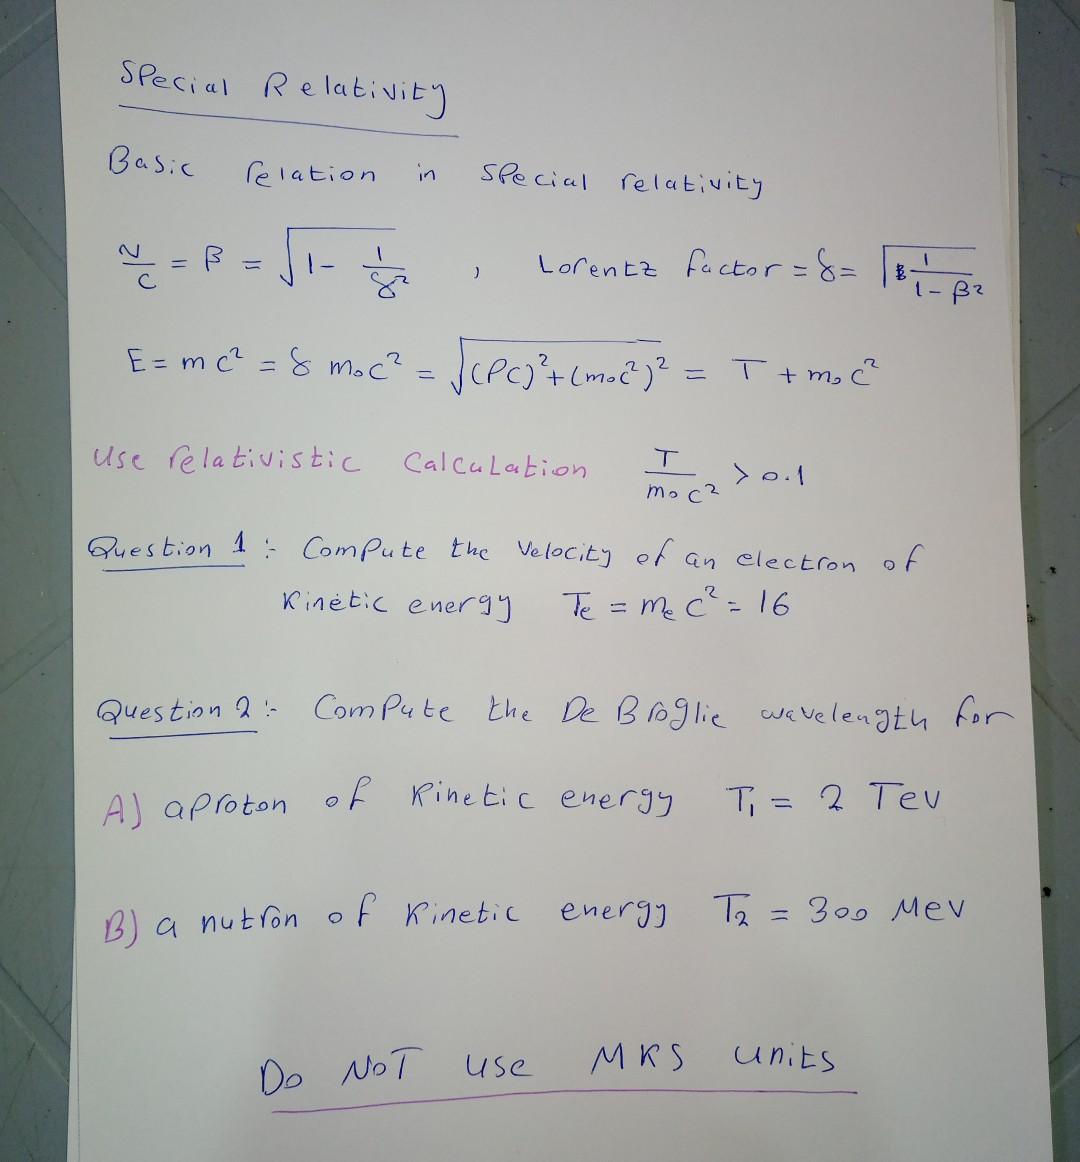 Special Relativity
Basic relation in special relativity
v/c = β = √(1 - 1/γ²) , Lorentz factor = γ = √(1/(1-β²))
E = mc² = γ m₀c² = √((PC)²+(m₀c²)²) = T + m₀c²
Use relativistic Calculation T/m₀c² > 0.1
Question 1 :- Compute the Velocity of an electron of
Kinetic energy Te = me c² = 16
Question 2 :- Compute the De Broglie wavelength for
A) a Proton of Kinetic energy T₁ = 2 Tev
B) a nutron of Kinetic energy T₂ = 300 Mev
Do NOT use MKS units